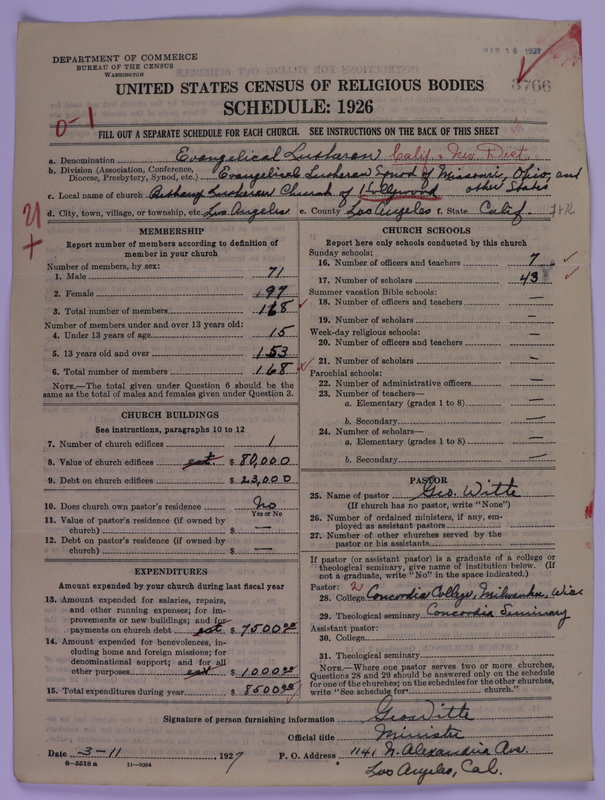 MAR 16 1927
DEPARTMENT OF COMMERCE
BUREAU OF THE CENSUS
WASHINGTON
3766
UNITED STATES CENSUS OF RELIGIOUS BODIES
SCHEDULE: 1926
0-1
FILL OUT A SEPARATE SCHEDULE FOR EACH CHURCH. SEE INSTRUCTIONS ON THE BACK OF THIS SHEET
a. Denomination Evangelical Lutheran Calif. + Nev. Dist.
b. Division (Association, Conference, Diocese, Presbytery, Synod, etc.) Evangelical Lutheran Synod of Missouri, Ohio, and other States
c. Local name of church Bethany Lutheran Church of Hollywood
d. City, town, village, or township, etc. Los Angeles e. County Los Angeles f. State Calif.
MEMBERSHIP
Report number of members according to definition of
member in your church
Number of members, by sex:
1. Male 71
2. Female 97
3. Total number of members 168
Number of members under and over 13 years old:
4. Under 13 years of age 15
5. 13 years old and over 153
6. Total number of members 168
NOTE.—The total given under Question 6 should be the
same as the total of males and females given under Question 3.
CHURCH BUILDINGS
See instructions, paragraphs 10 to 12
7. Number of church edifices 1
8. Value of church edifices est. $ 80,000
9. Debt on church edifices $ 23,000
10. Does church own pastor's residence No
Yes or No
11. Value of pastor's residence (if owned by
church) $ —
12. Debt on pastor's residence (if owned by
church) $ —
EXPENDITURES
Amount expended by your church during last fiscal year
13. Amount expended for salaries, repairs,
and other running expenses; for im-
provements or new buildings; and for
payments on church debt est $ 7500.00
14. Amount expended for benevolences, in-
cluding home and foreign missions; for
denominational support; and for all
other purposes est $ 1000.00
15. Total expenditures during year $ 8500.00
CHURCH SCHOOLS
Report here only schools conducted by this church
Sunday schools:
16. Number of officers and teachers 7
17. Number of scholars 43
Summer vacation Bible schools:
18. Number of officers and teachers —
19. Number of scholars —
Week-day religious schools:
20. Number of officers and teachers —
21. Number of scholars —
Parochial schools:
22. Number of administrative officers —
23. Number of teachers—
a. Elementary (grades 1 to 8) —
b. Secondary —
24. Number of scholars—
a. Elementary (grades 1 to 8) —
b. Secondary —
PASTOR
25. Name of pastor Geo. Witte
(If church has no pastor, write "None")
26. Number of ordained ministers, if any, em-
ployed as assistant pastors
27. Number of other churches served by the
pastor or his assistants
If pastor (or assistant pastor) is a graduate of a college or
theological seminary, give name of institution below. (If
not a graduate, write "No" in the space indicated.)
Pastor: 2
28. College Concordia College, Milwaukee, Wisc
29. Theological seminary Concordia Seminary
Assistant pastor:
30. College
31. Theological seminary
NOTE.—Where one pastor serves two or more churches,
Questions 28 and 29 should be answered only on the schedule
for one of the churches; on the schedules for the other churches,
write "See schedule for church."
Signature of person furnishing information Geo Witte
Official title Minister
Date 3-11, 1927 P. O. Address 1141 N. Alexandria Ave.
Los Angeles, Cal.
8-5518 a 11-9264